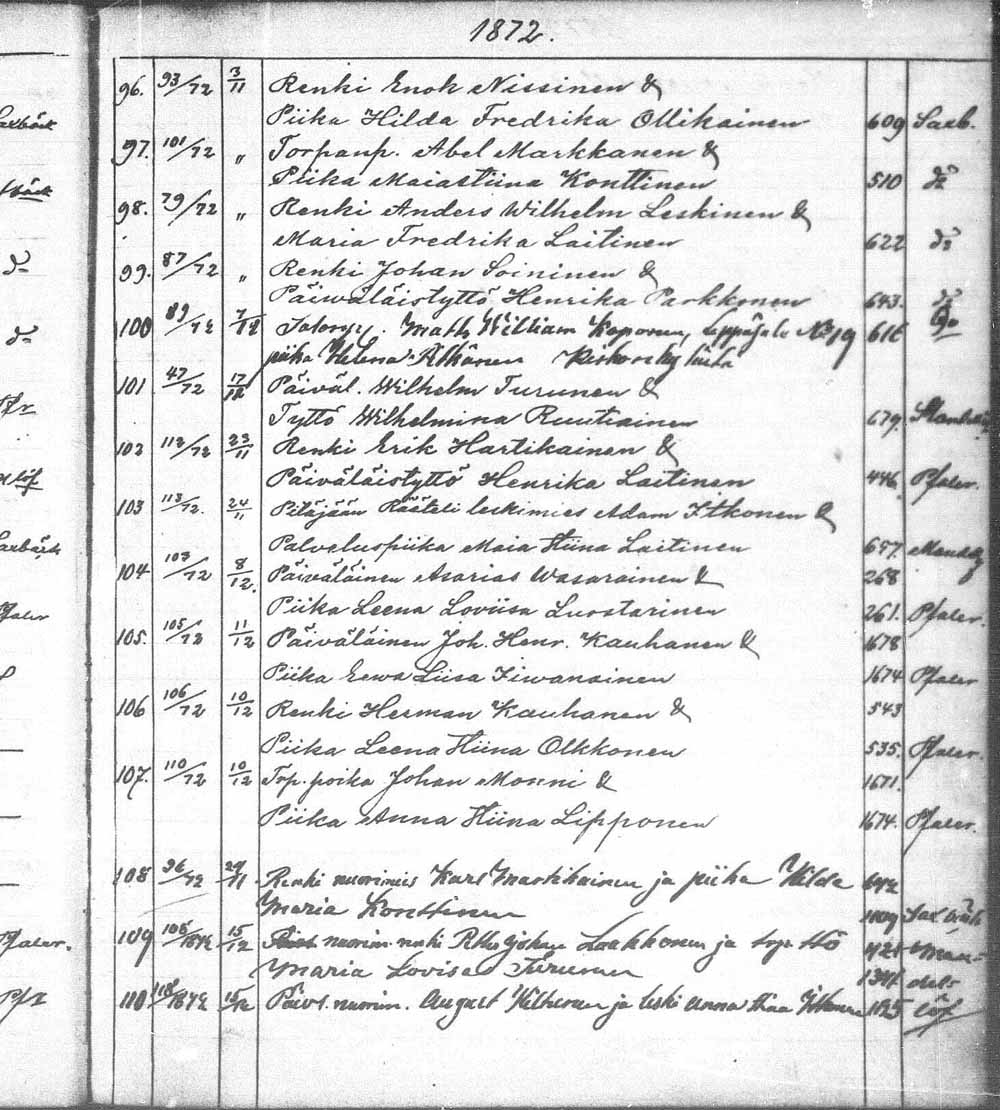 1872.
96. 93/72 3/11 Renki Enok Nissinen &
Piika Hilda Fredrika Ollikainen 609 Saxb.
97. 101/72 " Torpanp. Abel Markkanen &
Piika Maiastiina Konttinen 510 do
98. 79/72 " Renki Anders Wilhelm Leskinen &
Maria Fredrika Laitinen 622 do
99. 87/72 " Renki Johan Soininen &
Päiväläistyttö Henrika Parkkonen 643. do
100 89/72 7/12 William Koponen, No 19 616 do
piika Helena
101 47/72 17/12 Päiväl. Wilhelm Turunen &
Tyttö Wilhelmina Ruutiainen 679.
102 112/72 23/11 Renki Erik Hartikainen &
Päiväläistyttö Henrika Laitinen 446. Pfaler.
103 113/72. 24/11 Pitäjään Räätäli leskimies Adam Itkonen &
Palveluspiika Maia Stiina Laitinen 657.
104 103/72 8/12. Päiväläinen Asarias Wasarainen & 268
Piika Leena Loviisa Luostarinen 261. Pfaler.
105. 105/72 11/12 Päiväläinen Joh. Henr. Kauhanen & 1678
Piika Eewa Liisa Iiwanainen 1674 Pfaler
106 106/72 10/12 Renki Herman Kauhanen & 543
Piika Leena Stiina Olkkonen 535. Pfaler.
107. 110/72 10/12 Trp. poika Johan Monni & 1671.
Piika Anna Stiina Lipponen 1674. Pfaler.
108 96/72 29/11. Renki nuorimies Karl Martikainen ja piika Hilda 642
Maria Konttinen 1109 Saxbäck
109 108/1872 15/12 nuorim. Laakkonen ja trp. ttö 421
Maria Lovisa Turunen
110 118/1872 15/12 Päivl. nuorim. August ja leski Anna Itkonen 1125 Löf